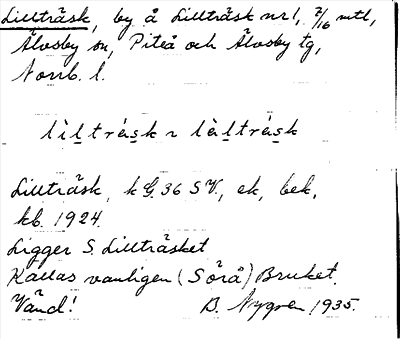 Lillträsk, by å Lillträsk nr 1, 7/16 mtl,
Älvsby sn, Piteå och Älvsby tg,
Norrb. l.
lìltrásk ~ làltrásk
Lillträsk, k G. 36 SV., ek, bek,
kb. 1924.
Ligger S. Lillträsket
Kallas vanligen (Sörå) Bruket.
Vänd! B. Nygren 1935.